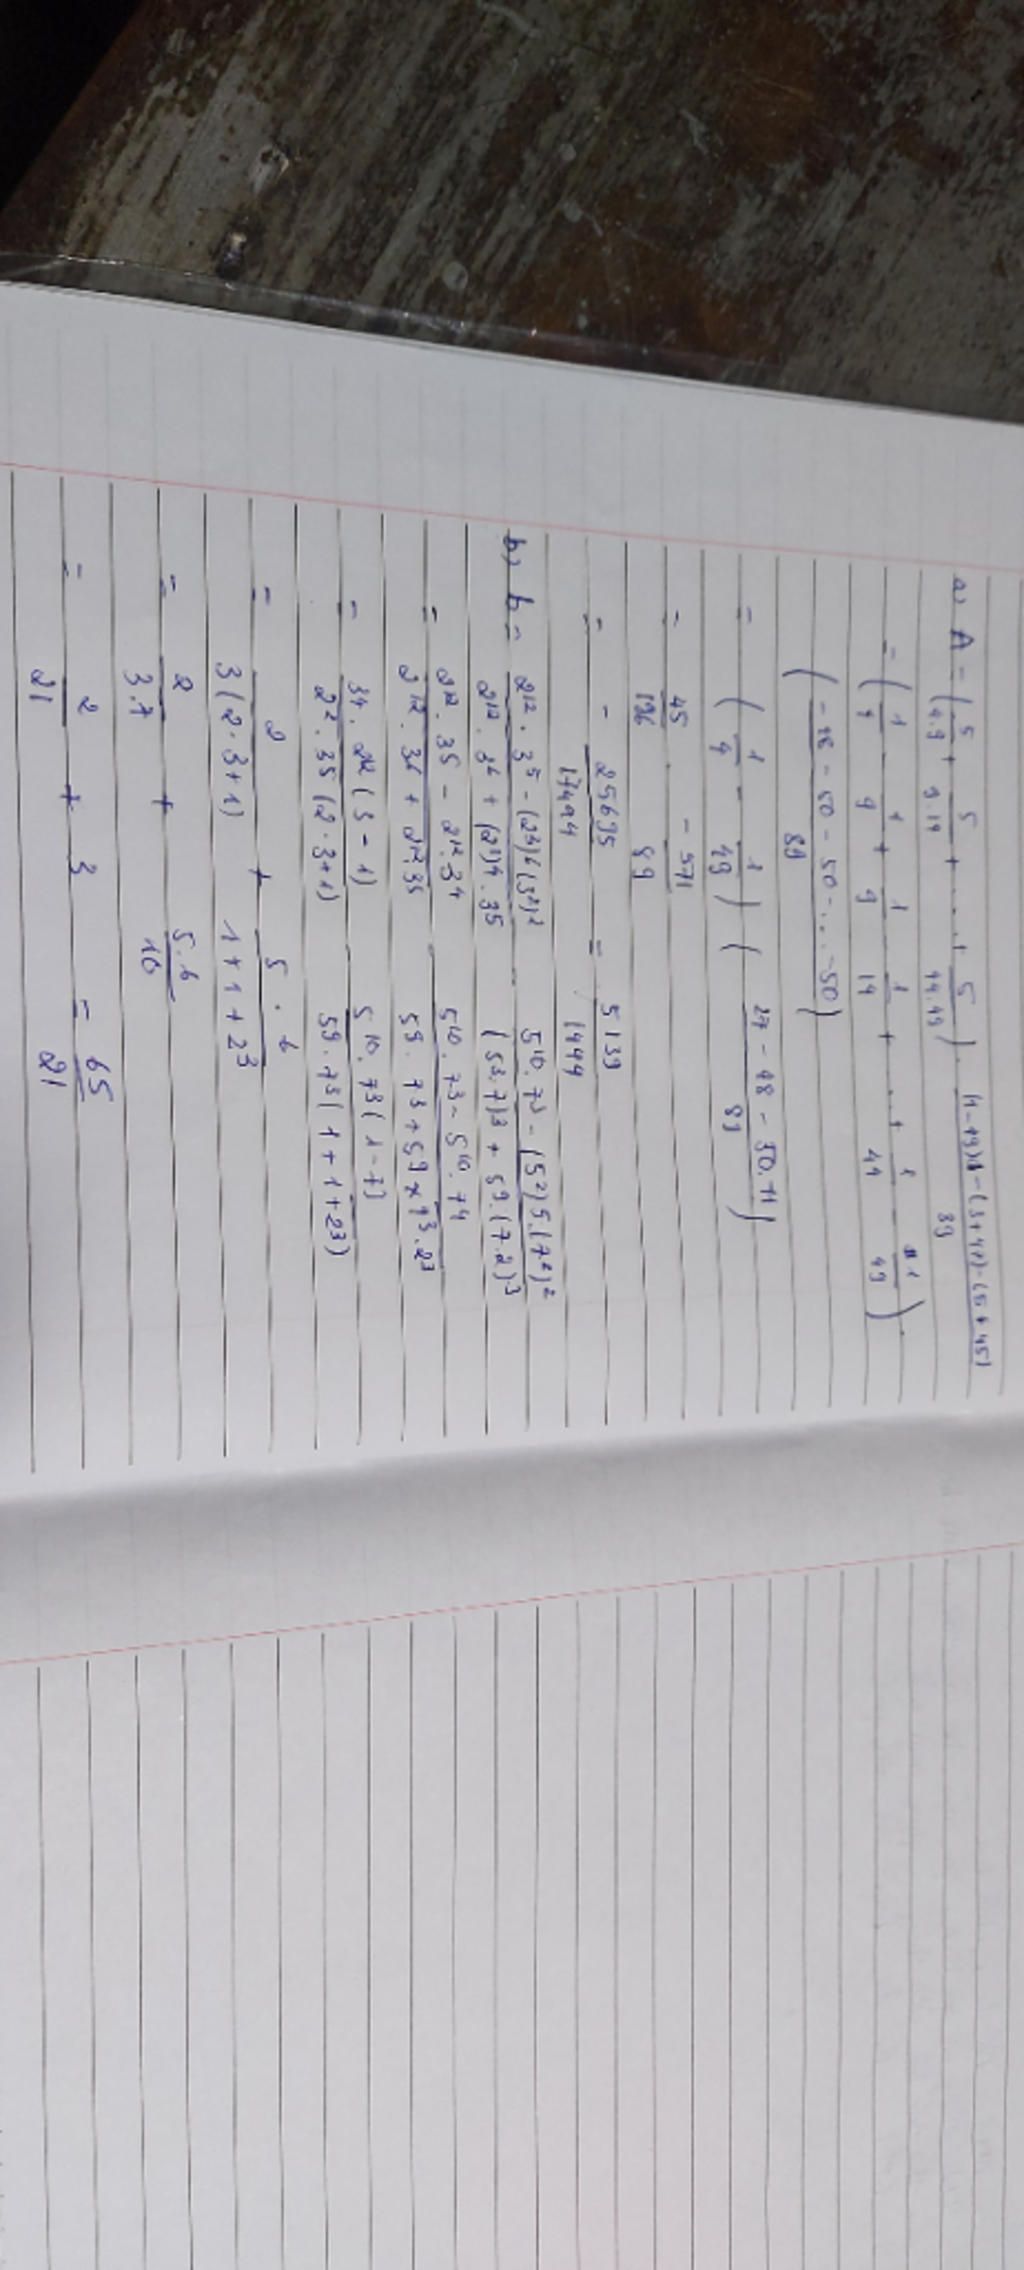 a) A = ( 5/4.9 + 5/9.14 + .... + 5/44.49 ) . (1-49)1-(3+47)-(5+45)/89
= ( 1/4 1/9 + 1/9 1/14 + ... + 1/44 1/49 ) .
( -48 - 50 - 50 - ... -50 )/89
= ( 1/4 - 1/49 ) ( 27 - 48 - 50.11/89 )
= 45/196 . -571/89
= - 25695/17444 = 5139/1444
b) b = 2^12 . 3^5 - (2^3)6(3^2)^2/2^12 . 3^6 + (2^3)4.35 5^10. 73 - (5^2)5.(7^2)^2/(53.7)3 + 59.(7.2)^3
= 2^12 . 35 - 2^12.34/2^12. 36 + 2^12.35 5^10. 73 - 5^10. 74/59. 73 + 59 x 73.23
= 34. 2^12 ( 3 - 1 )/2^2. 35 ( 2 . 3+1 ) 5 10. 73 ( 1 - 7 )/59. 73 ( 1 + 1 + 23 )
= 2/3 ( 2 . 3+1 ) + 5 . 6/1 + 1 + 23
= 2/3.7 + 5.6/10
= 2/21 + 3 = 65/21